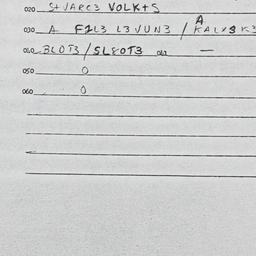 020 S+VARC3 VOLK+S
030 A F2L3 L3VUN3 / A KALX8K3
040 BLOT3/SL8OT3 042 —
050 0
060 0